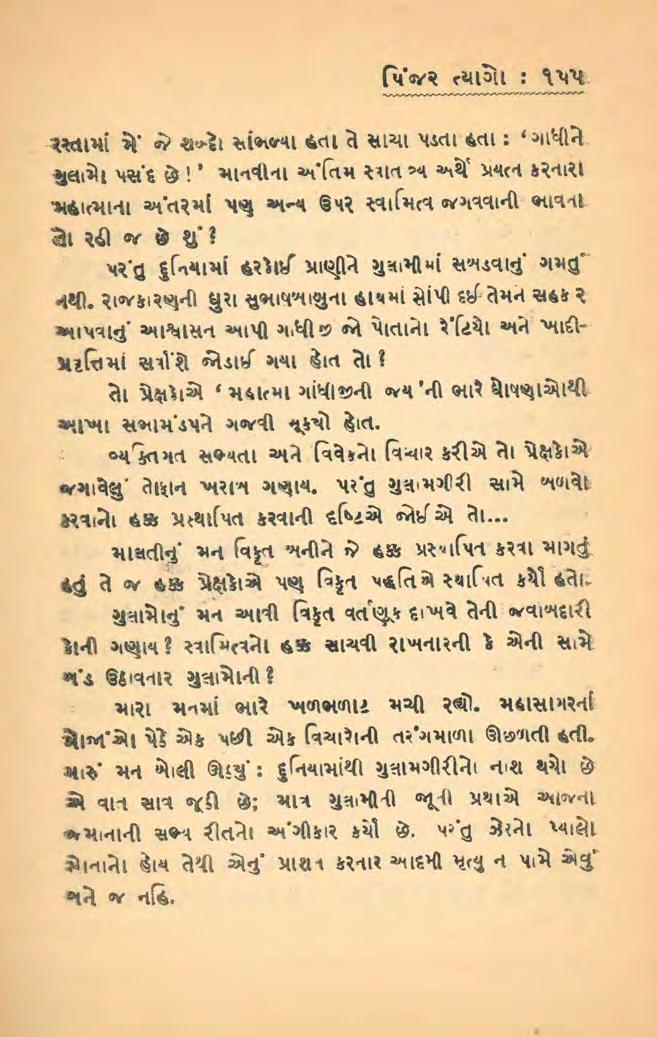 પિંજર ત્યાગો : ૧૫૫
રસ્તામાં મેં જે શબ્દો સાંભળ્યા હતા તે સાચા પડતા હતા : ‘ગાંધીને
ગુલામો પસંદ છે !’ માનવીના અંતિમ સ્વાતંત્ર્ય અર્થે પ્રયત્ન કરનારા
મહાત્માના અંતરમાં પણ અન્ય ઉપર સ્વામિત્વ જગવવાની ભાવના
તો રહી જ છે શું ?
પરંતુ દુનિયામાં હરકોઈ પ્રાણીને ગુલામીમાં સબડવાનું ગમતું
નથી. રાજકારણની ધુરા સુભાષબાબુના હાથમાં સોંપી દઈ તેમને સહકાર
આપવાનું આશ્વાસન આપી ગાંધીજી જો પોતાનો રેંટિયો અને ખાદી-
પ્રવૃત્તિમાં સર્વાંશે જોડાઈ ગયા હોત તો ?
તો પ્રેક્ષકોએ ‘ મહાત્મા ગાંધીજીની જય ’ની ભારે ઘોષણાઓથી
આખા સભામંડપને ગજવી મૂક્યો હોત.
વ્યક્તિગત સભ્યતા અને વિવેકનો વિચાર કરીએ તો પ્રેક્ષકોએ
જગાવેલું તોફાન ખરાબ ગણાય. પરંતુ ગુલામગીરી સામે બળવો
કરવાનો હક્ક પ્રસ્થાપિત કરવાની દૃષ્ટિએ જોઈએ તો...
માલતીનું મન વિકૃત બનીને જે હક્ક પ્રસ્થાપિત કરવા માગતું
હતું તે જ હક્ક પ્રેક્ષકોએ પણ વિકૃત પદ્ધતિએ સ્થાપિત કર્યો હતો.
ગુલામોનું મન આવી વિકૃત વર્તણૂક દાખવે તેની જવાબદારી
કોની ગણાય ? સ્વામિત્વનો હક્ક સાચવી રાખનારની કે એની સામે
બંડ ઉઠાવનાર ગુલામોની ?
મારા મનમાં ભારે ખળભળાટ મચી રહ્યો. મહાસાગરનાં
મોજાંઓ પેઠે એક પછી એક વિચારોની તરંગમાળા ઊછળતી હતી.
મારું મન બોલી ઊઠ્યું : દુનિયામાંથી ગુલામગીરીનો નાશ થયો છે
એ વાત સાવ જૂઠી છે; માત્ર ગુલામીની જૂની પ્રથાએ આજના
જમાનાની સભ્ય રીતનો અંગીકાર કર્યો છે. પરંતુ ઝેરનો પ્યાલો
સોનાનો હોય તેથી એનું પ્રાશન કરનાર આદમી મૃત્યુ ન પામે એવું
બને જ નહિ.